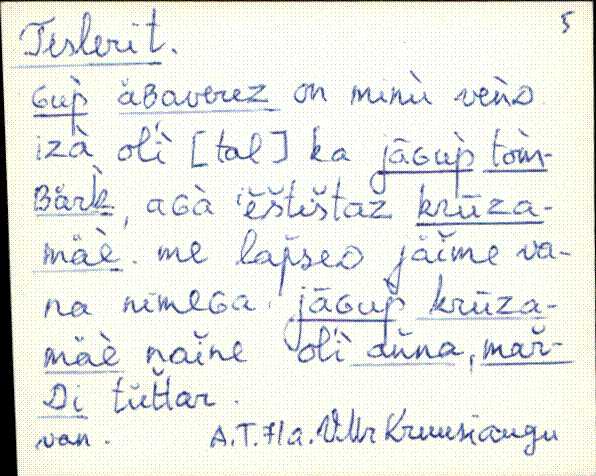 Teslerit. 5
ɢup̀ äʙaverez on minù veǹᴅ
izà olì [tal] ka jāɢup̀ tòm-
ʙärk̀, aɢà ěštištaz krūza-
mäè. me lapseᴅ jäime va-
na nimeɢa. jāɢup̀ krūza-
mäè naĭne olì ǎnna, mař-
ᴅi tüttar.
van. A.T. 71a. V.Mr